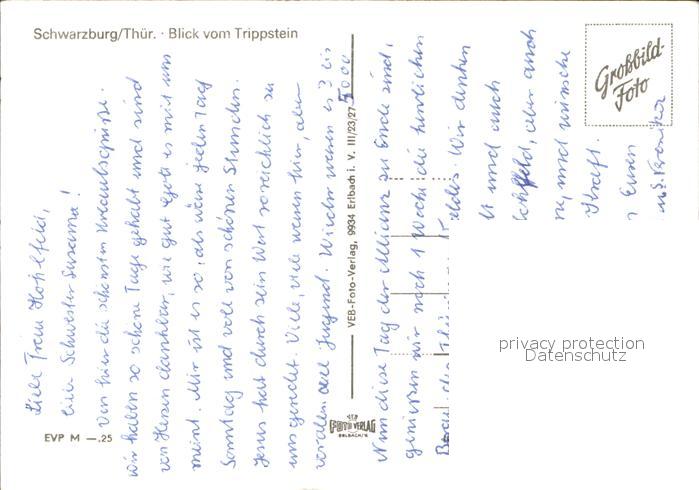 Schwarzburg/Thür. · Blick vom Trippstein
Großbild-
Foto
VEB-Foto-Verlag, 9934 Erlbach i. V. III/23/27
5000
FOTO VERLAG
ERLBACH/V.
EVP M —.25
privacy protection
Datenschutz
Liebe Frau
liebe Schwester Susanna!
Von hier die schönsten Urlaubsgrüße.
Wir haben so schöne Tage gehabt und sind
von Herzen dankbar, wie gut Gott es mit uns
meint. Mir ist es so, als wäre jeden Tag
Sonntag und voll von schönen Stunden.
Jesus hat durch sein Wort so reichlich zu
uns geredet. Viele, viele waren hier, aber
vor allem Jugend. Wieder waren es 3 bis
Nun diese Tag der Allianz zu Ende sind,
genießen wir noch 1 Woche die herrlichen
Wir denken
und auch
aber auch
und wünsche
Kraft.
Euren